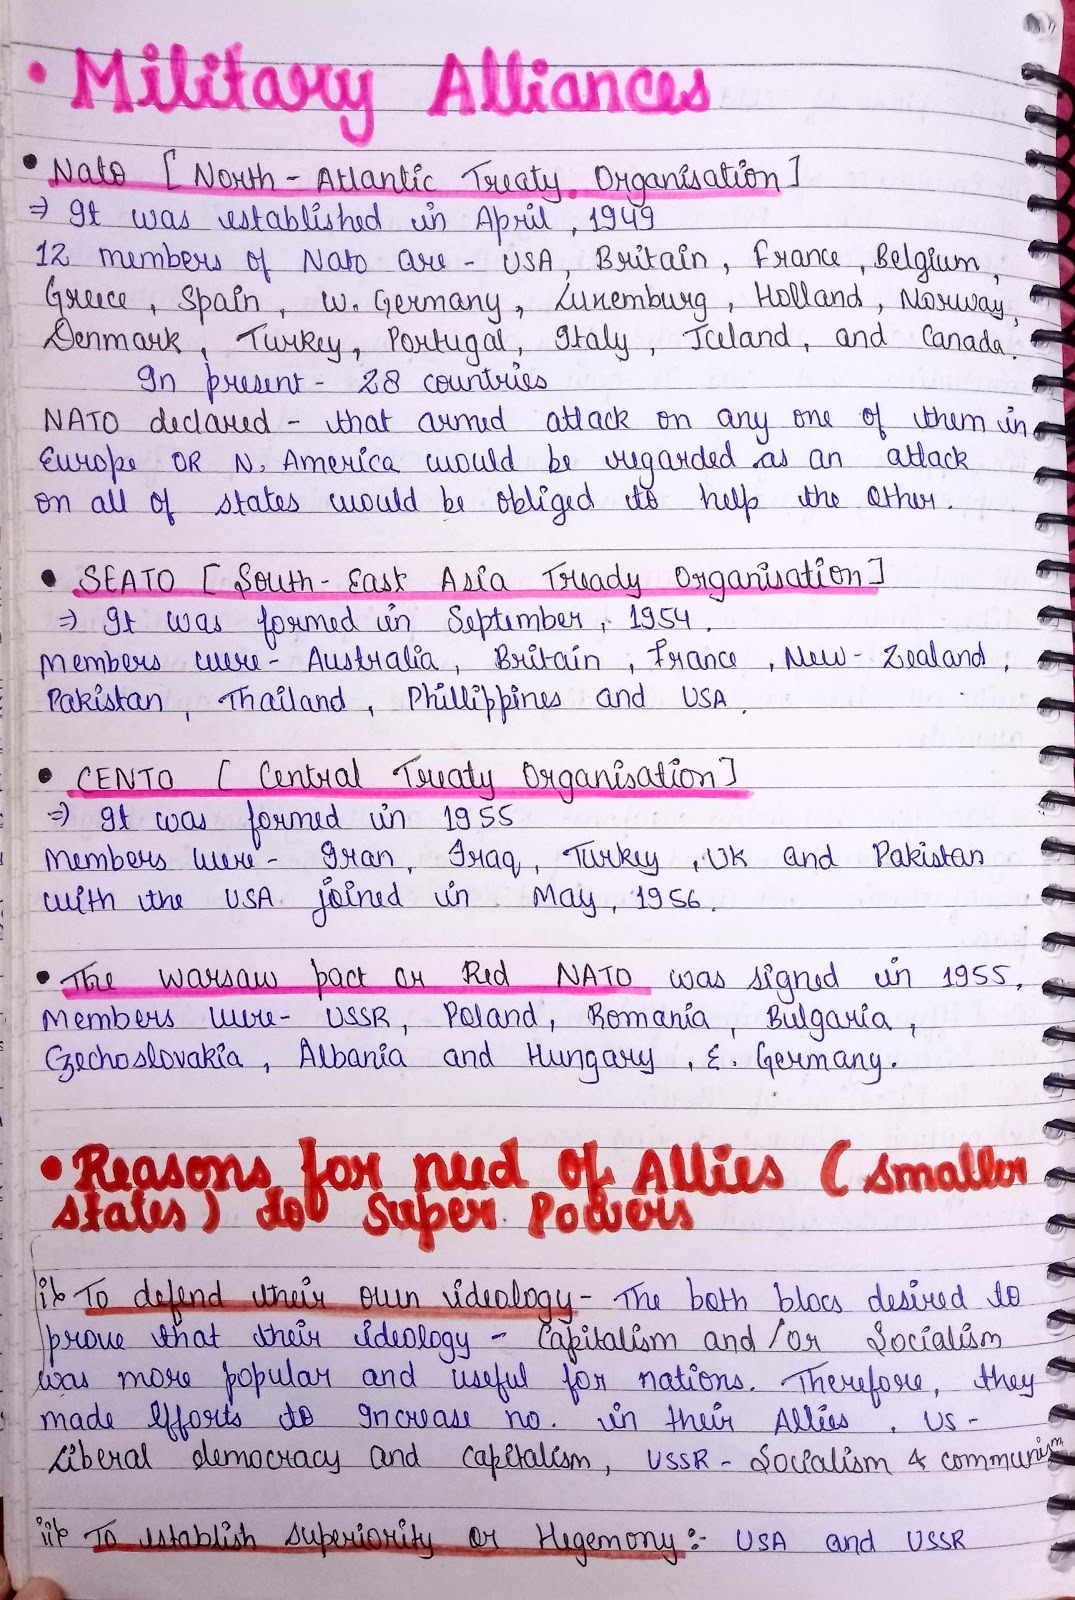 • Military Alliances
• Nato [North-Atlantic Treaty Organisation]
⇒ It was established in April, 1949
12 members of Nato are - USA, Britain, France, Belgium,
Greece, Spain, W. Germany, Luxemburg, Holland, Norway,
Denmark, Turkey, Portugal, Italy, Iceland, and Canada.
In present - 28 countries
NATO declared - that armed attack on any one of them in
Europe OR N. America would be regarded as an attack
on all of states would be obliged to help the other.
• SEATO [South-East Asia Tready Organisation]
⇒ It was formed in September, 1954.
Members were - Australia, Britain, France, New-Zealand,
Pakistan, Thailand, Phillippines and USA.
• CENTO [Central Treaty Organisation]
⇒ It was formed in 1955
Members were - Iran, Iraq, Turkey, UK and Pakistan
with the USA joined in May, 1956.
• The Warsaw pact or Red NATO was signed in 1955.
Members were- USSR, Poland, Romania, Bulgaria,
Czechoslovakia, Albania and Hungary, E. Germany.
• Reasons for need of Allies (smaller
states) to Super Powers
i) To defend their own ideology - The both blocs desired to
prove that their ideology - Capitalism and/or Socialism
was more popular and useful for nations. Therefore, they
made efforts to Increase no. in their Allies. US-
Liberal democracy and capitalism, USSR - Socialism & communism
ii) To establish superiority or Hegemony:- USA and USSR